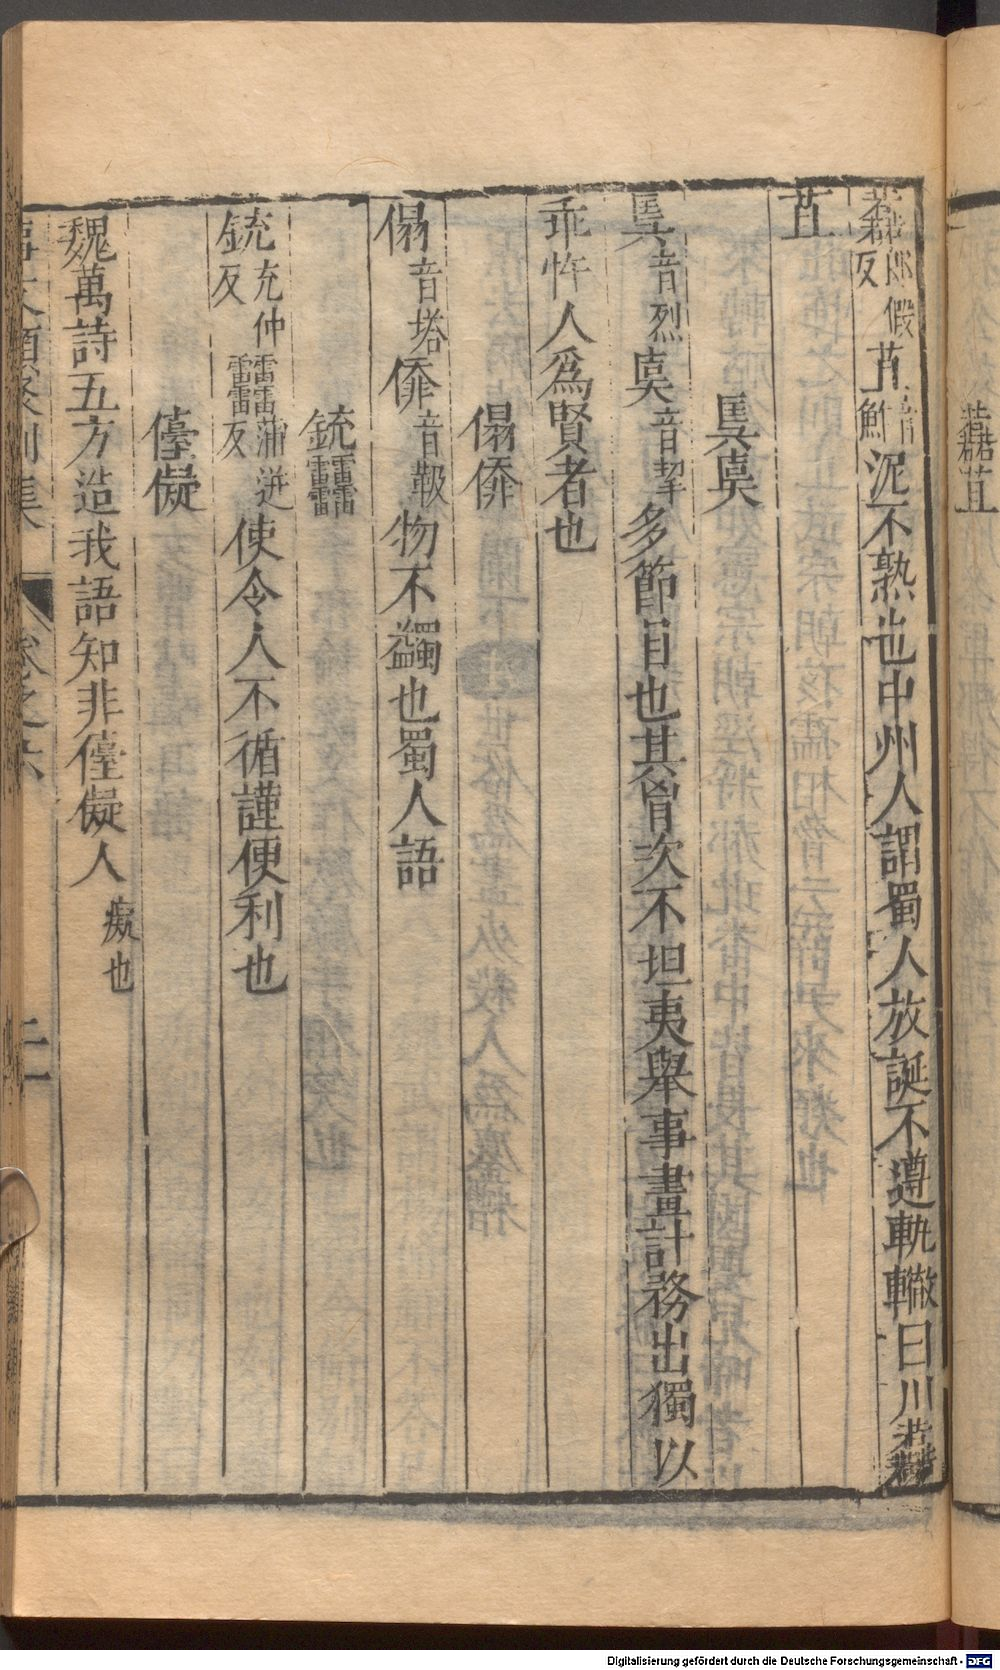 苴
鮓泥不熟也中州人謂蜀人放誕不遵軌轍曰川
苴
奊𡕷
奊音烈𡕷音挈多節目也其胷次不坦夷舉事畫計務出獨以
乖忤人為賢者也
傝㑻
傝音塔㑻音靸物不蠲也蜀人語
銃
銃充仲反蒲迸反使令人不循謹便利也
儓儗
魏萬詩五方造我語知非儓儗人癡也
卷之六
Digitalisierung gefördert durch die Deutsche Forschungsgemeinschaft - DFG